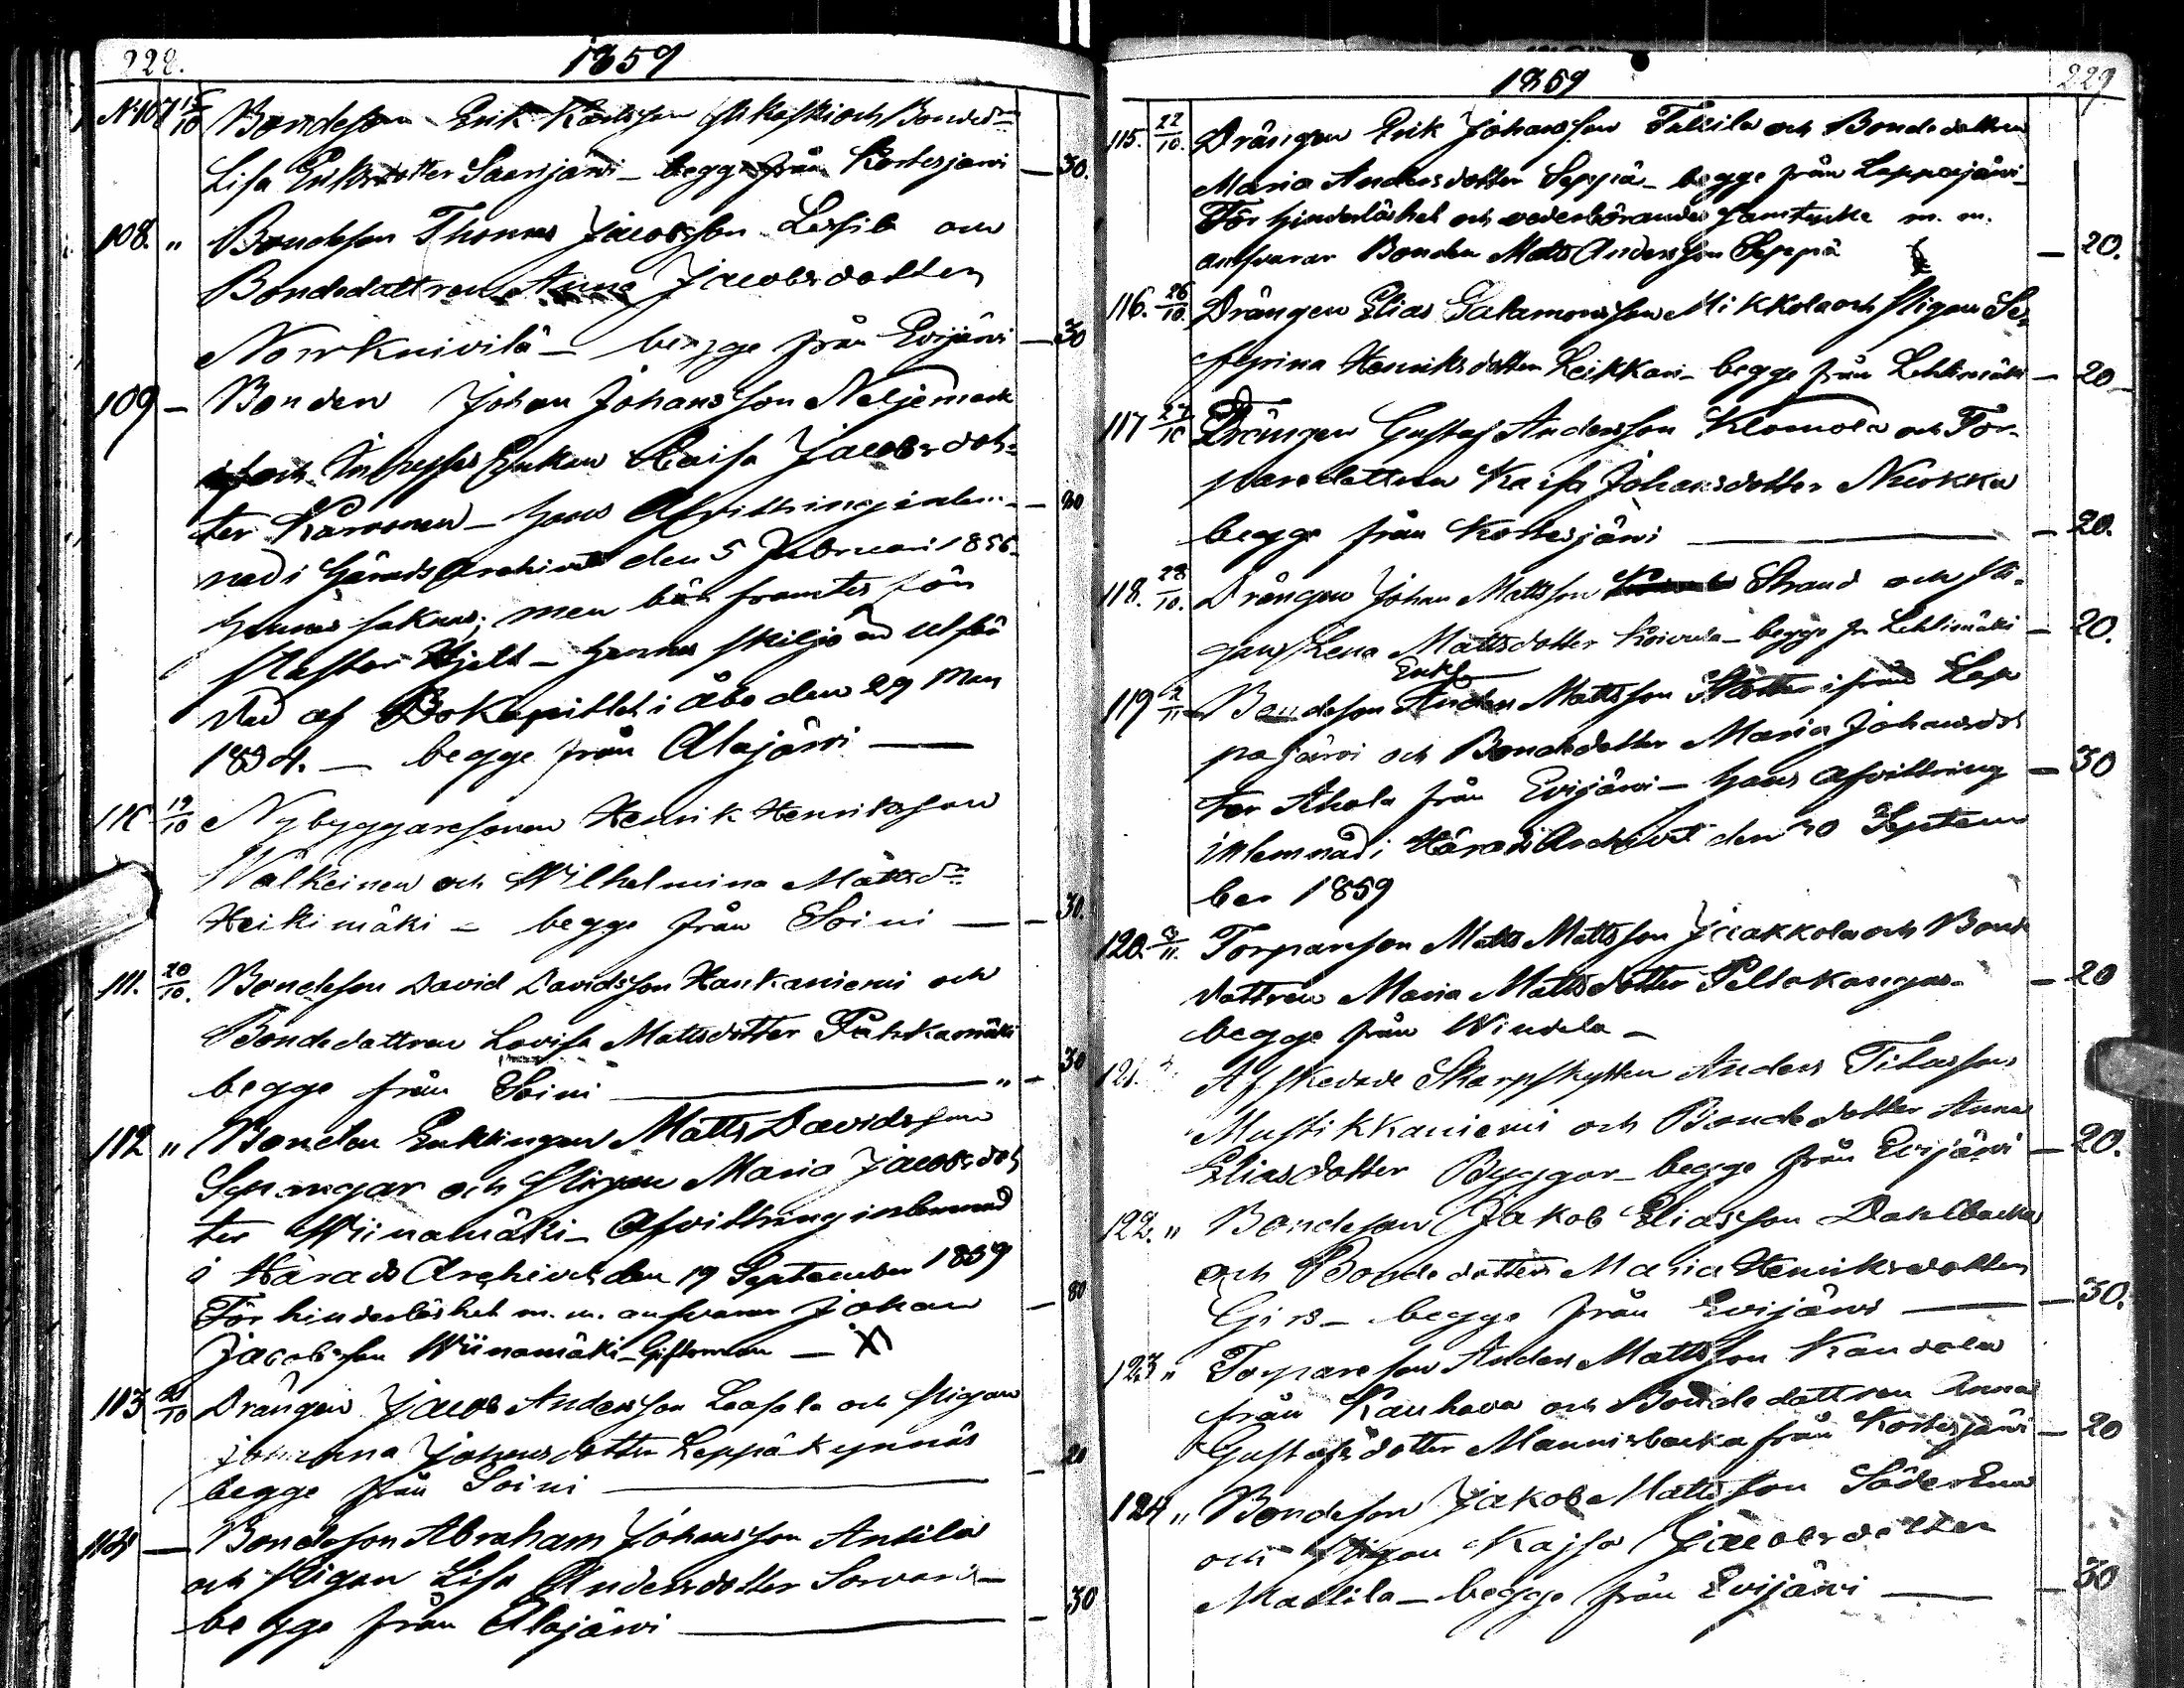 228.
1859
No 107 15/10 Bondeson Erik Karlsson och Bonded:n
Lisa Eriksdotter Saarijärvi - begge från Kortesjärvi — 30.
108. " Bondeson Thomas Jacobsson och
Bondedottren Anna Jacobsdotter
Norrknivilä - begge från Evijärvi — 30
109 — Bonden Johan Johansson
och Enkan Kaisa Jacobsdot-
ter - hans Afvittring inlem- — 20
nad i Härads Archivet den 5 Februari 1856
men bör framtes från
hennes skiljo
af i Åbo den 29
— begge från Alajärvi —
110 19/10 Nybyggaresonen Henrik Henriksson
Välkeinen och Wilhelmina Mattsd:r
Heikimäki - begge från Soini — — 30.
111. 20/10. Bondeson David Davidsson Hankaniemi och
Bondedottren Lovisa Mattsdotter
begge från Soini — " - 30
112 " Bonden Enklingen Matts Davidsson
och Pigan Maria Jacobsdot
ter Wiinamäki - Afvittring inlemnad
i Härads Archivet den 19 September 1859
För hinderlöshet m. m. ansvarar Johan — 30
Jacobsson Wiinamäki - Giftoman —
113 21/10 Drängen Jacob Andersson Laasala och Pigan
Johanna Johansdotter Leppäkynnäs
begge från Soini — — 20
114 — Bondeson Abraham Johansson Antila
och Pigan Lisa Andersdotter Sorvari -
begge från Alajärvi — — 30
229
1859
115. 22/10. Drängen Erik Johansson Takkila och Bondedottren
Maria Andersdotter Seppä - begge från Lappajärvi -
För hinderlöshet och vederbörandes samtycke m. m.
ansvarar Bonden Matts Andersson Seppä — 20.
116. 26/10. Drängen Elias Salamonsson Mikkola och Pigan Se-
rafina Henriksdotter Leikkari - begge från Lehtimäki — 20
117 27/10 Drängen Gustaf Andersson Klomola och Tor-
paredottren Kaisa Johansdotter Niukka
begge från Kortesjärvi — — 20.
118. 28/10. Drängen Johan Mattsson Strand och Pi-
gan Lena Mattsdotter Koivula - begge fr Lehtimäki — 20.
Enkl
119 2/11 Bondeson Anders Mattsson ifrån Lap
pajärvi och Bondedotter Maria Johansdot
ter Ahola från Evijärvi - hans afvittring — 30
inlemnad i Härads Archivet den 30 Septem
ber 1859
120. 3/11. Torpareson Matts Mattsson Jaakkola och Bonde
dottren Maria Mattsdotter Peltokangas - — 20
begge från Windala -
121. Afskedade Skarpskytten Anders Titusson
Mustikkaniemi och Bondedotter Anna
Eliasdotter Byggar - begge från Evijärvi — 20.
122. " Bondeson Jakob Eliasson Dahlbacka
och Bondedotter Maria Henriksdotter
Girs - begge från Evijärvi — — 30.
123 " Torpareson Anders Mattsson Kandola
från Kauhava och Bondedottren Anna
Gustafsdotter Mannisbacka från Kortesjärvi — 20
124 " Bondeson Jakob Mattsson
och Pigan Kajsa Jacobsdotter
Mattila - begge från Evijärvi — — 30